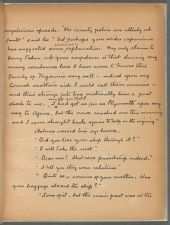 mysterious episode. "The county police are utterly at
fault" said he "but perhaps your wider experience
has suggested some explanation. My only claim to
being taken into your confidence is that during my
many residences here I have come to know this
family of Tregennis very well – indeed upon my
Cornish mother's side I could call them cousins –
and their strange fate has naturally been a great
shock to me. I had got as far as Plymouth upon my
way to Africa, but the news reached me this morning
and I came straight back again to help in the inquiry"
Holmes raised his eyebrows.
"Did you lose your ship through it?"
"I will take the next"
"Dear me! that was friendship indeed."
"I tell you they were relatives"
"Quite so – cousins of your mother. Was
your baggage aboard the ship?"
"Some of it, but the main part was at the